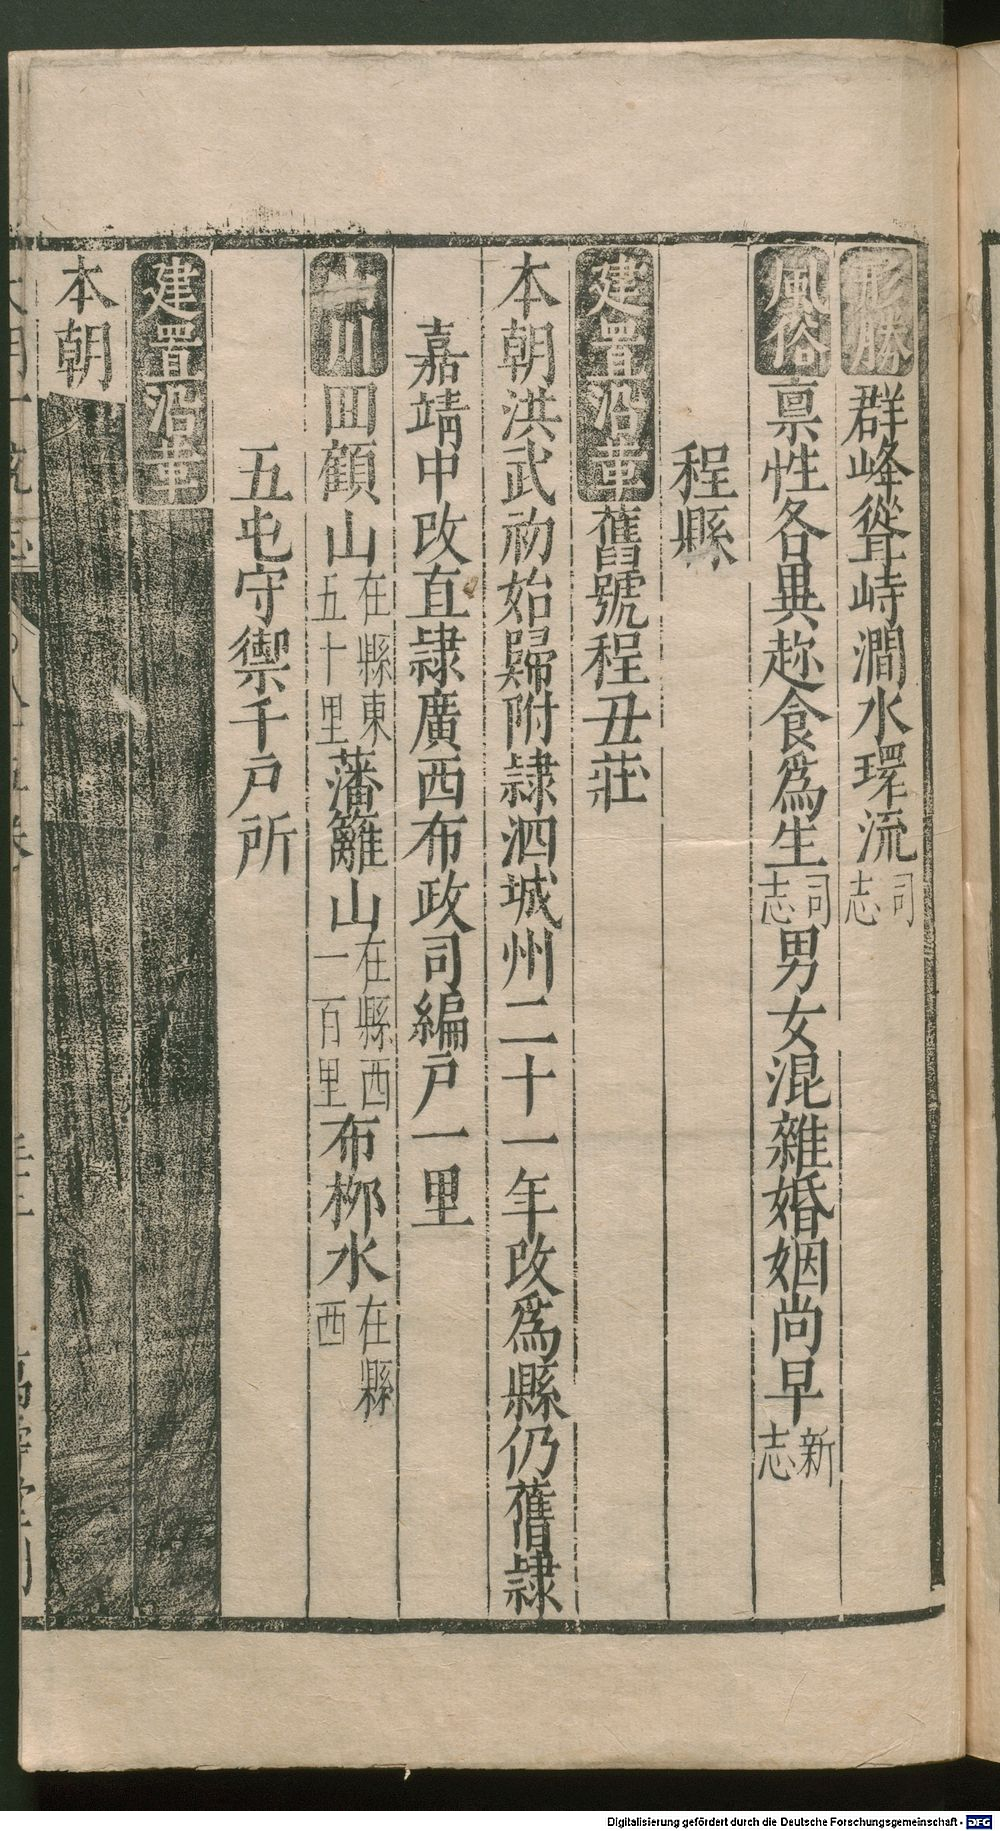 形勝群峰聳峙澗水環流司志
風俗禀性各異趂食爲生司志男女混雜婚姻尚早新志
程縣
建置沿革舊號程丑莊
本朝洪武初始歸附隷泗城州二十一年改爲縣仍舊隷
嘉靖中改直隷廣西布政司編戸一里
山川囬顧山在縣東五十里藩籬山在縣西一百里布桞水在縣西
五屯守禦千戸所
建置沿革
本朝
Digitalisierung gefördert durch die Deutsche Forschungsgemeinschaft - DFG